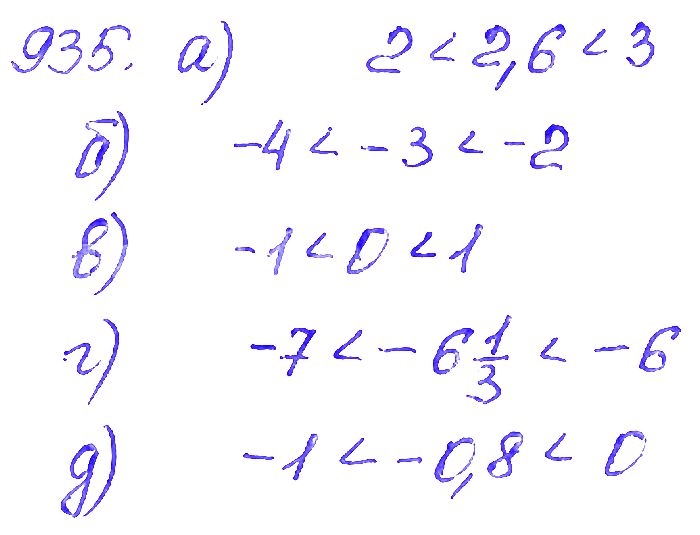 935. а) 2 < 2,6 < 3
б) -4 < -3 < -2
в) -1 < 0 < 1
г) -7 < -6 1/3 < -6
д) -1 < -0,8 < 0